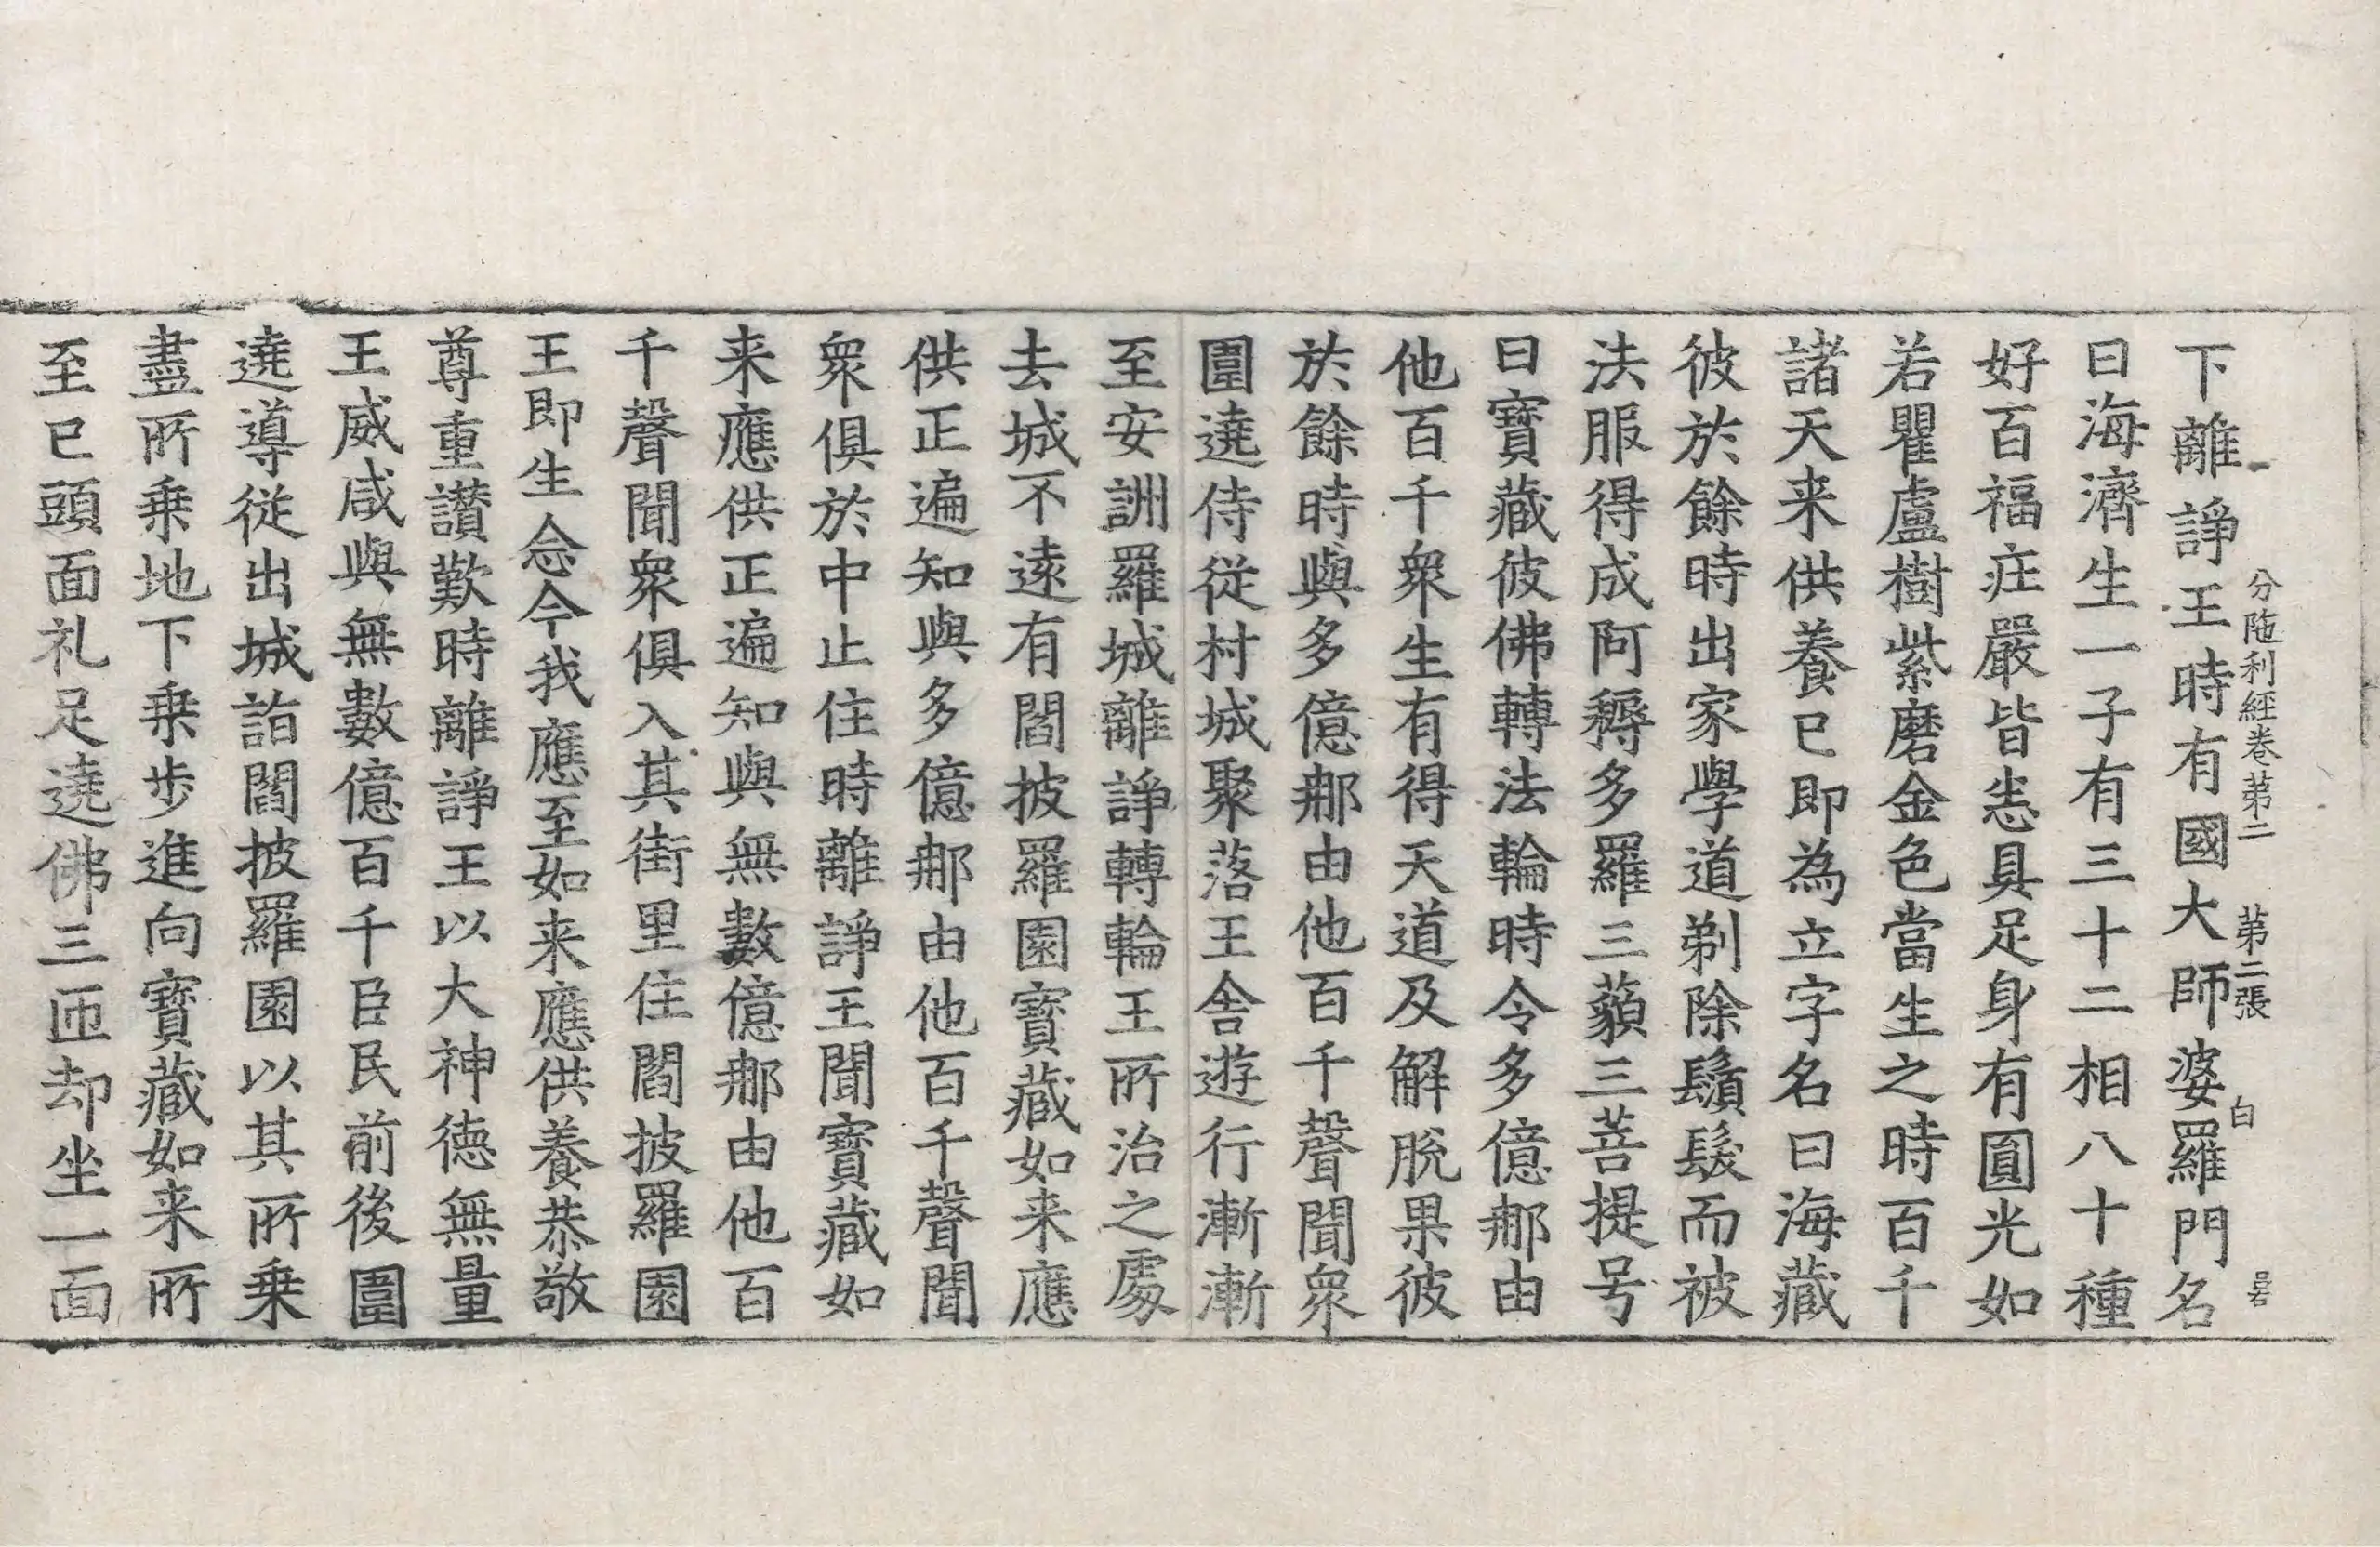 分陁利經卷第二 第二張 白
下離諍王時有國大師婆羅門名
曰海濟生一子有三十二相八十種
好百福庄嚴皆悉具足身有圓光如
若瞿盧樹紫磨金色當生之時百千
諸天来供養已即為立字名曰海藏
彼於餘時出家學道剃除鬚髮而被
法服得成阿耨多羅三藐三菩提号
曰寶藏彼佛轉法輪時令多億那由
他百千衆生有得天道及解脫果彼
於餘時與多億那由他百千聲聞衆
圍遶侍從村城聚落王舍遊行漸漸
至安訓羅城離諍轉輪王所治之處
去城不遠有閻披羅園寶藏如来應
供正遍知與多億那由他百千聲聞
衆俱於中止住時離諍王聞寶藏如
来應供正遍知與無數億那由他百
千聲聞衆俱入其街里住閻披羅園
王即生念今我應至如来應供養恭敬
尊重讃歎時離諍王以大神德無量
王威咸與無數億百千臣民前後圍
遶導從出城詣閻披羅園以其所乗
盡所乗地下乗步進向寶藏如来所
至已頭面礼足遶佛三匝却坐一面